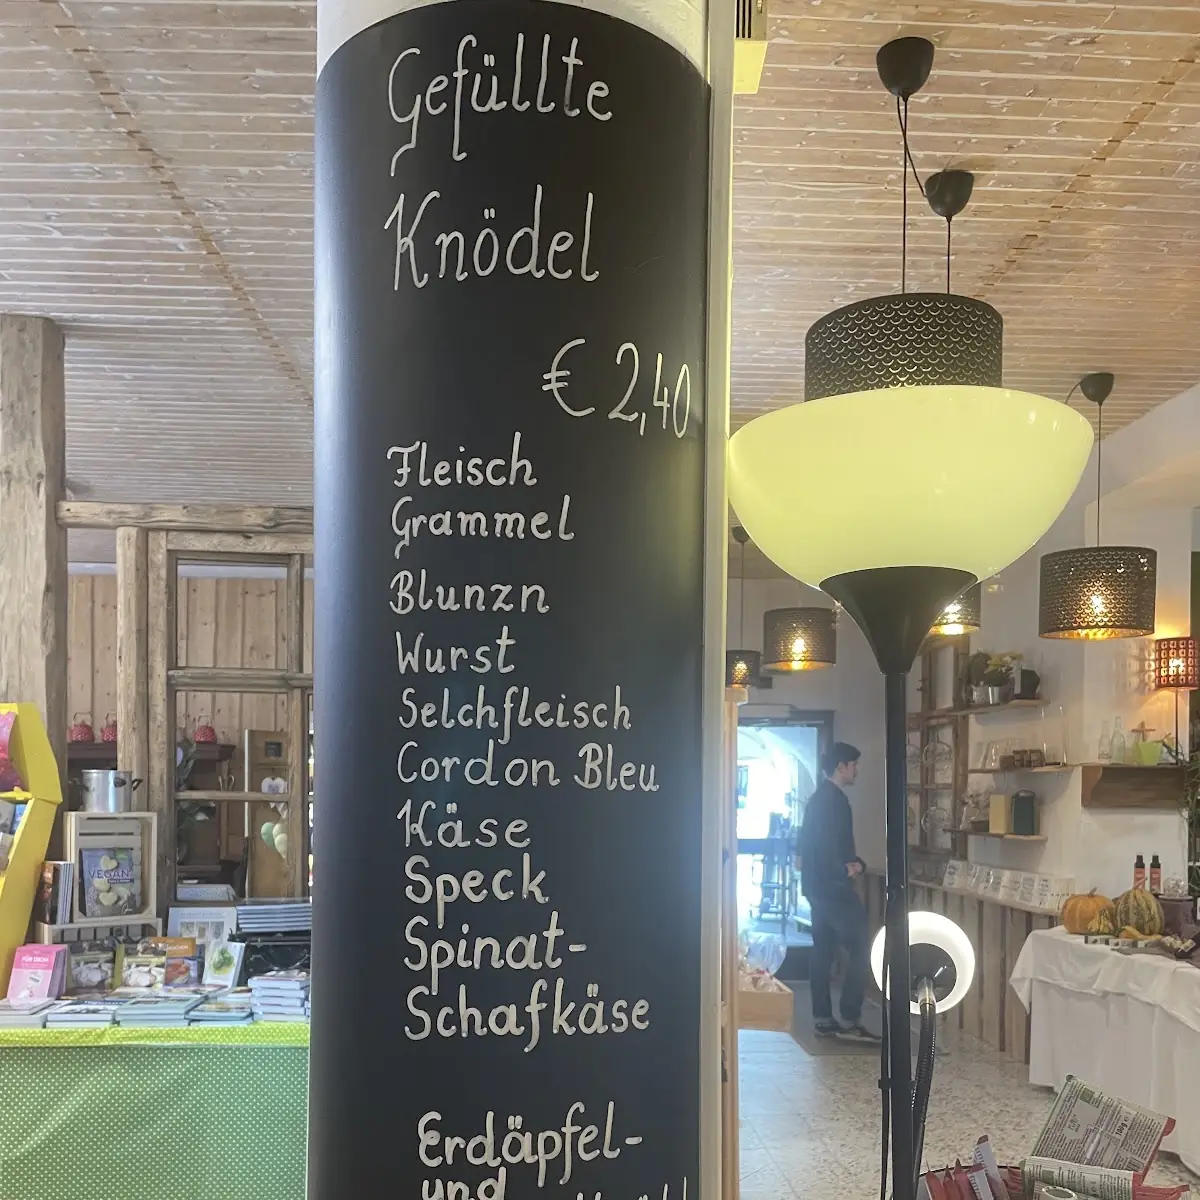 Gefüllte
Knödel
€ 2,40
Fleisch
Grammel
Blunzn
Wurst
Selchfleisch
Cordon Bleu
Käse
Speck
Spinat-
Schafkäse
Erdäpfel-
und
VEGAN
FÜR DICH